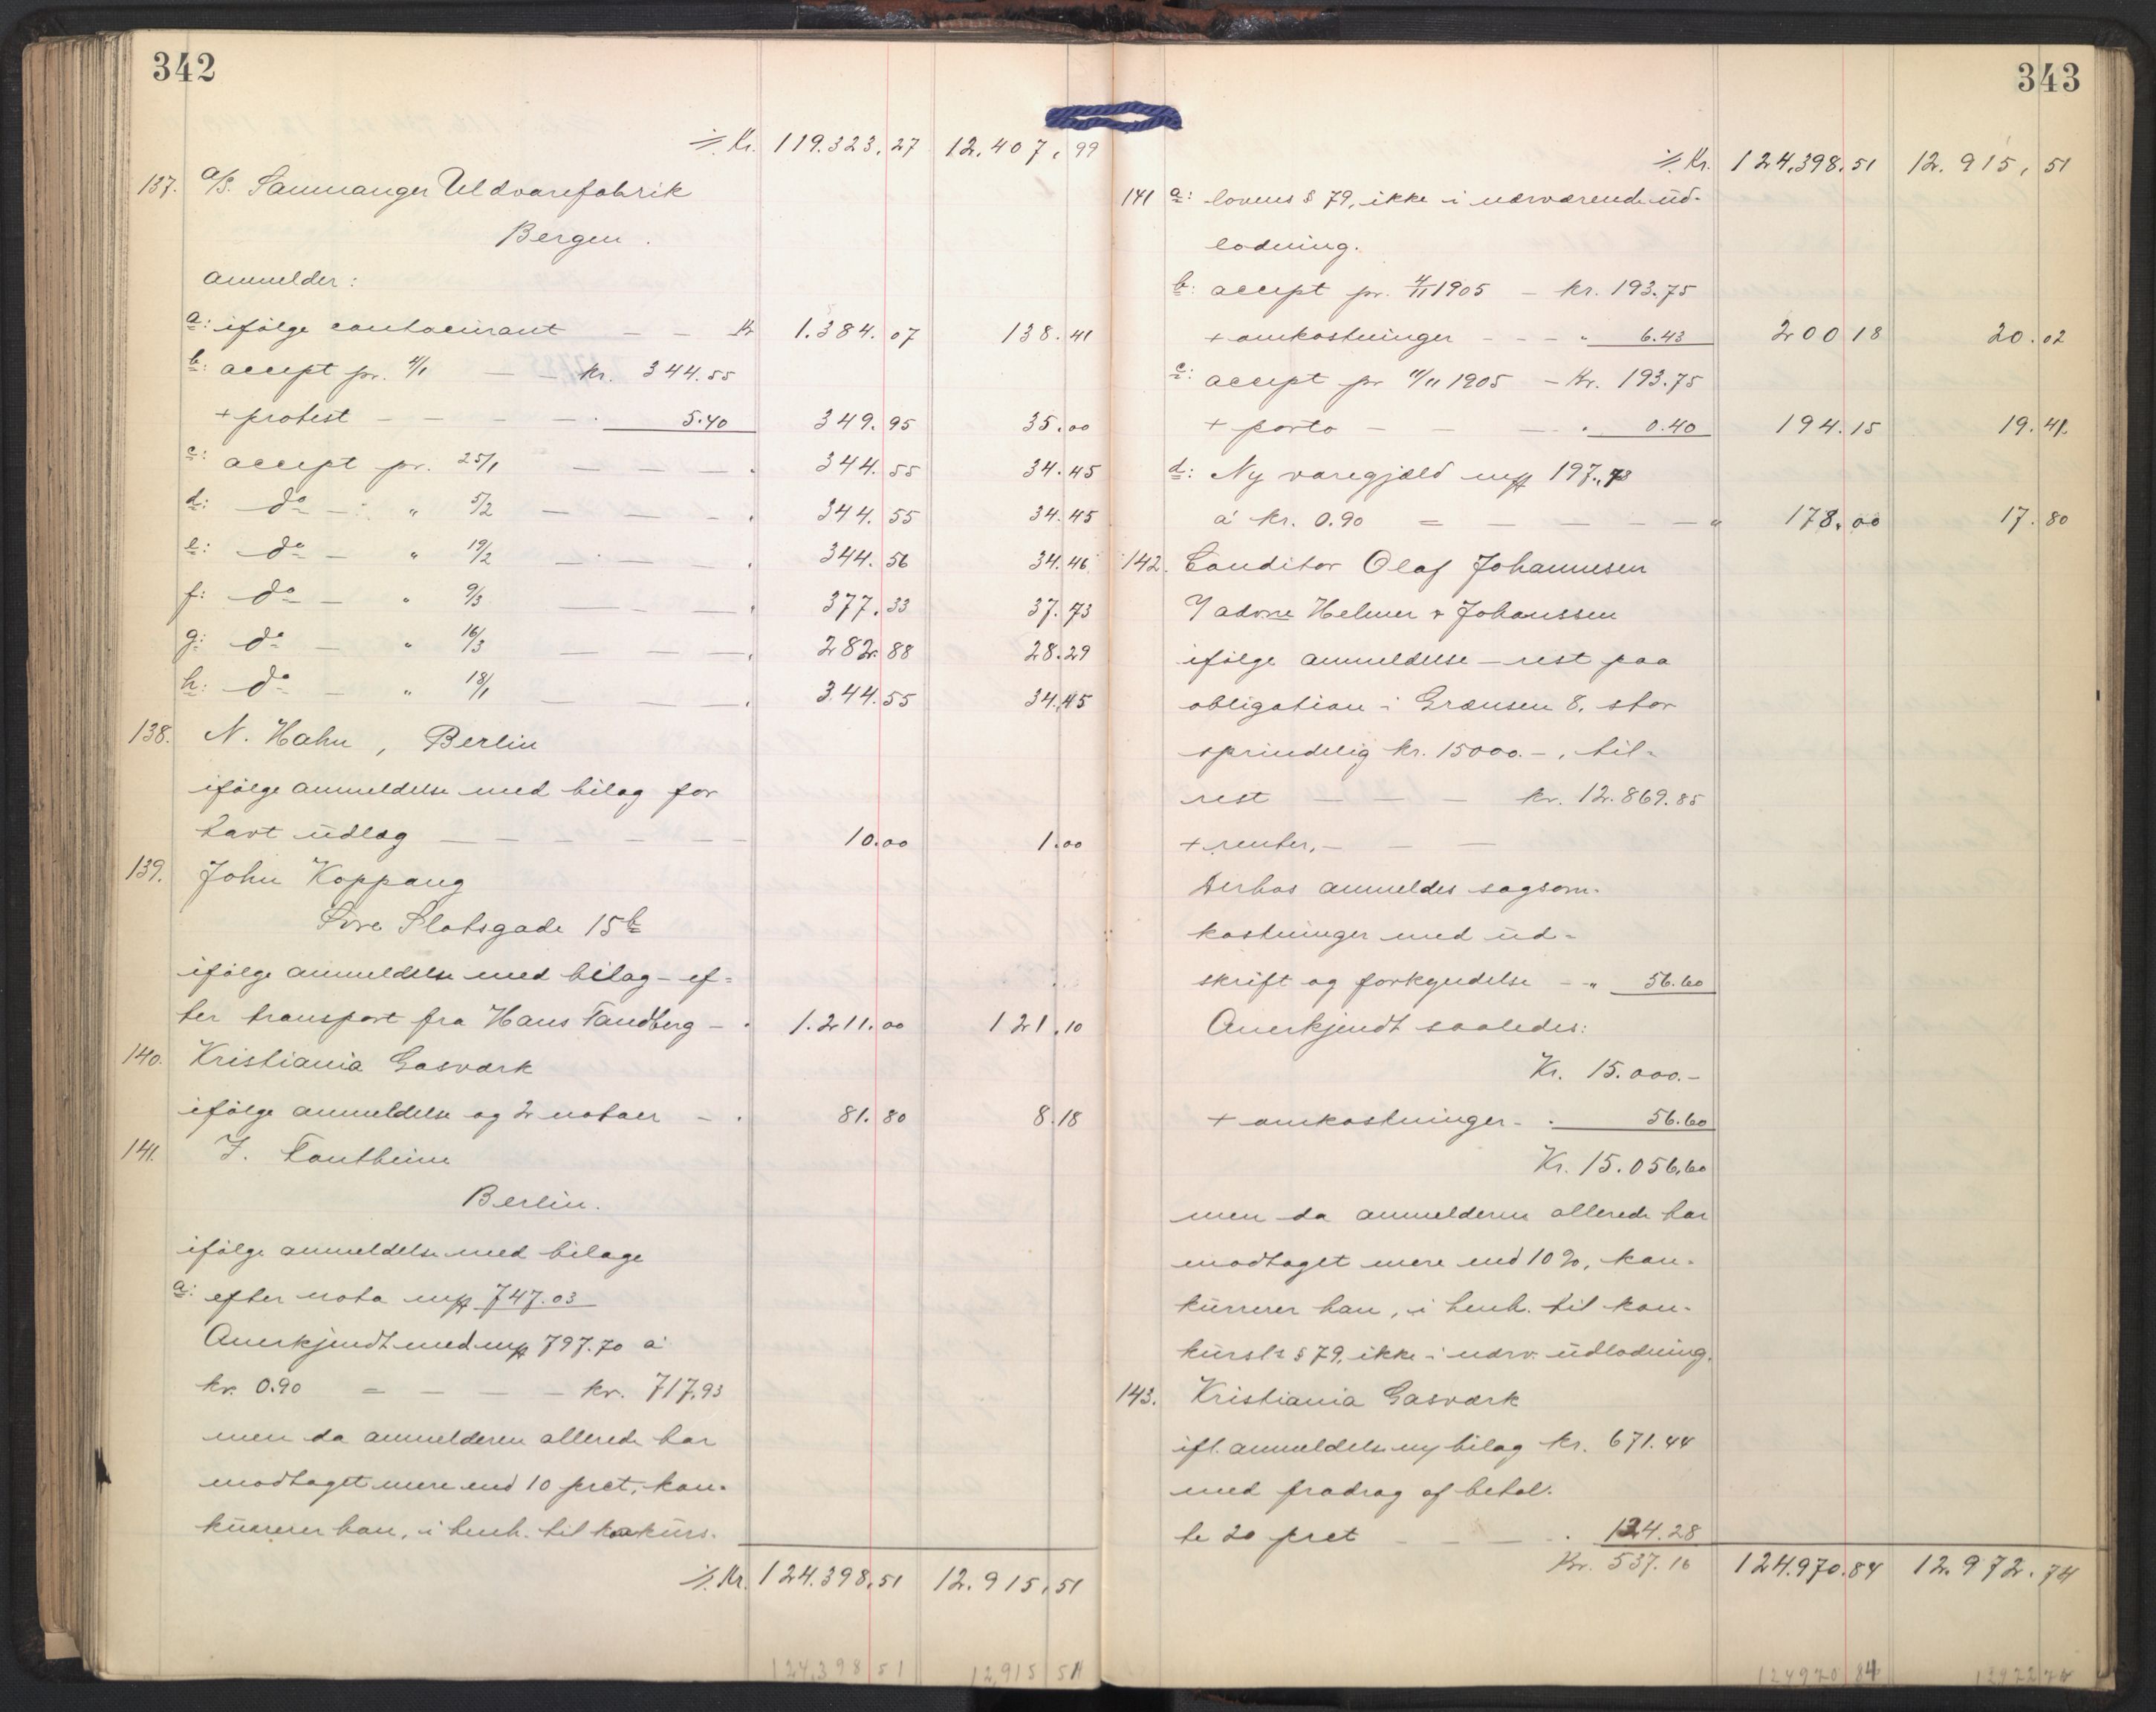 342
÷ Kr. 119.323.27 12.407.99
137. A/S. Samnanger Uldvarefabrik
Bergen.
anmelder:
a: ifölge contocurant — — Kr 1.384.07 138.41
b: accept pr. 4/1 — — kr. 344.55
+ protest — — — — " 5.40 349.95 35.00
c: accept pr. 25/1 — — — " 344.55 34.45
d: do — " 5/2 — — — " 344.55 34.45
e: do — " 19/2 — — — " 344.56 34.46
f: do — " 9/3 — — — " 377.33 37.73
g: do — " 16/3 — — — " 282.88 28.29
h: do — " 18/1 — — — " 344.55 34.45
138. N. Hahn, Berlin
ifölge anmeldelse med bilag for
havt udlæg — — — — — — 10.00 1.00
139. John Koppang
Övre Slotsgade 15b
ifölge anmeldelse med bilag - ef=
ter transport fra Hans Tandberg — " 1.211.00 121.10
140. Kristiania Gasværk
ifölge anmeldelse og 2 notaer — " 81.80 8.18
141.
Berlin.
ifölge anmeldelse med bilage
a: efter nota 747.03
Anerkjendt med 797.70 á
kr. 0.90 = — — — kr. 717.93
men da anmelderen allerede har
modtaget mere end 10 prct, kon-
kurerer han, i henh. til konkurs-
÷ Kr. 124.398.51 12.915.51
124,398 51 12,915 51
343
÷ Kr. 124.398.51 12.915.51
141 a: lovens § 79, ikke i nærværende ud-
lodning.
b: accept pr. 4/11 1905 — kr. 193.75
+ omkostninger — — — " 6.43 200 18 20.02
c: accept pr 11/11 1905 — Kr. 193.75
+ porto — — — " 0.40 194.15 19.41
d: Ny varegjæld 197.,73
á kr. 0.90 = — — — — " 178.00 17.80
142. Conditor Olaf Johannesen
v/ adv. Helmer & Johanssen
ifölge anmeldelse - rest paa
obligation i Grænsen 8, stor
oprindelig kr. 15000.-, til-
rest — — — kr. 12.869.85
+ renter, — — —
Derhos anmeldes sagsom-
kostninger med ud=
skrift og forkyndelse — " 56.60
Anerkjendt saaledes:
Kr. 15.000.-
+ omkostninger - " 56.60
Kr. 15.056,60
men da anmelderen allerede har
modtaget mere end 10%, kon-
kurrerer han, i henh. til kon-
kursls § 79, ikke i nærv. udlodning.
143. Kristiania Gasværk
ifl. anmeldelse m/ bilag kr. 671.44
med fradrag af betal-
te 20 prct — — — " 134.28
Kr. 537.16 124.970.84 12.972.74
124970 84 12972 74